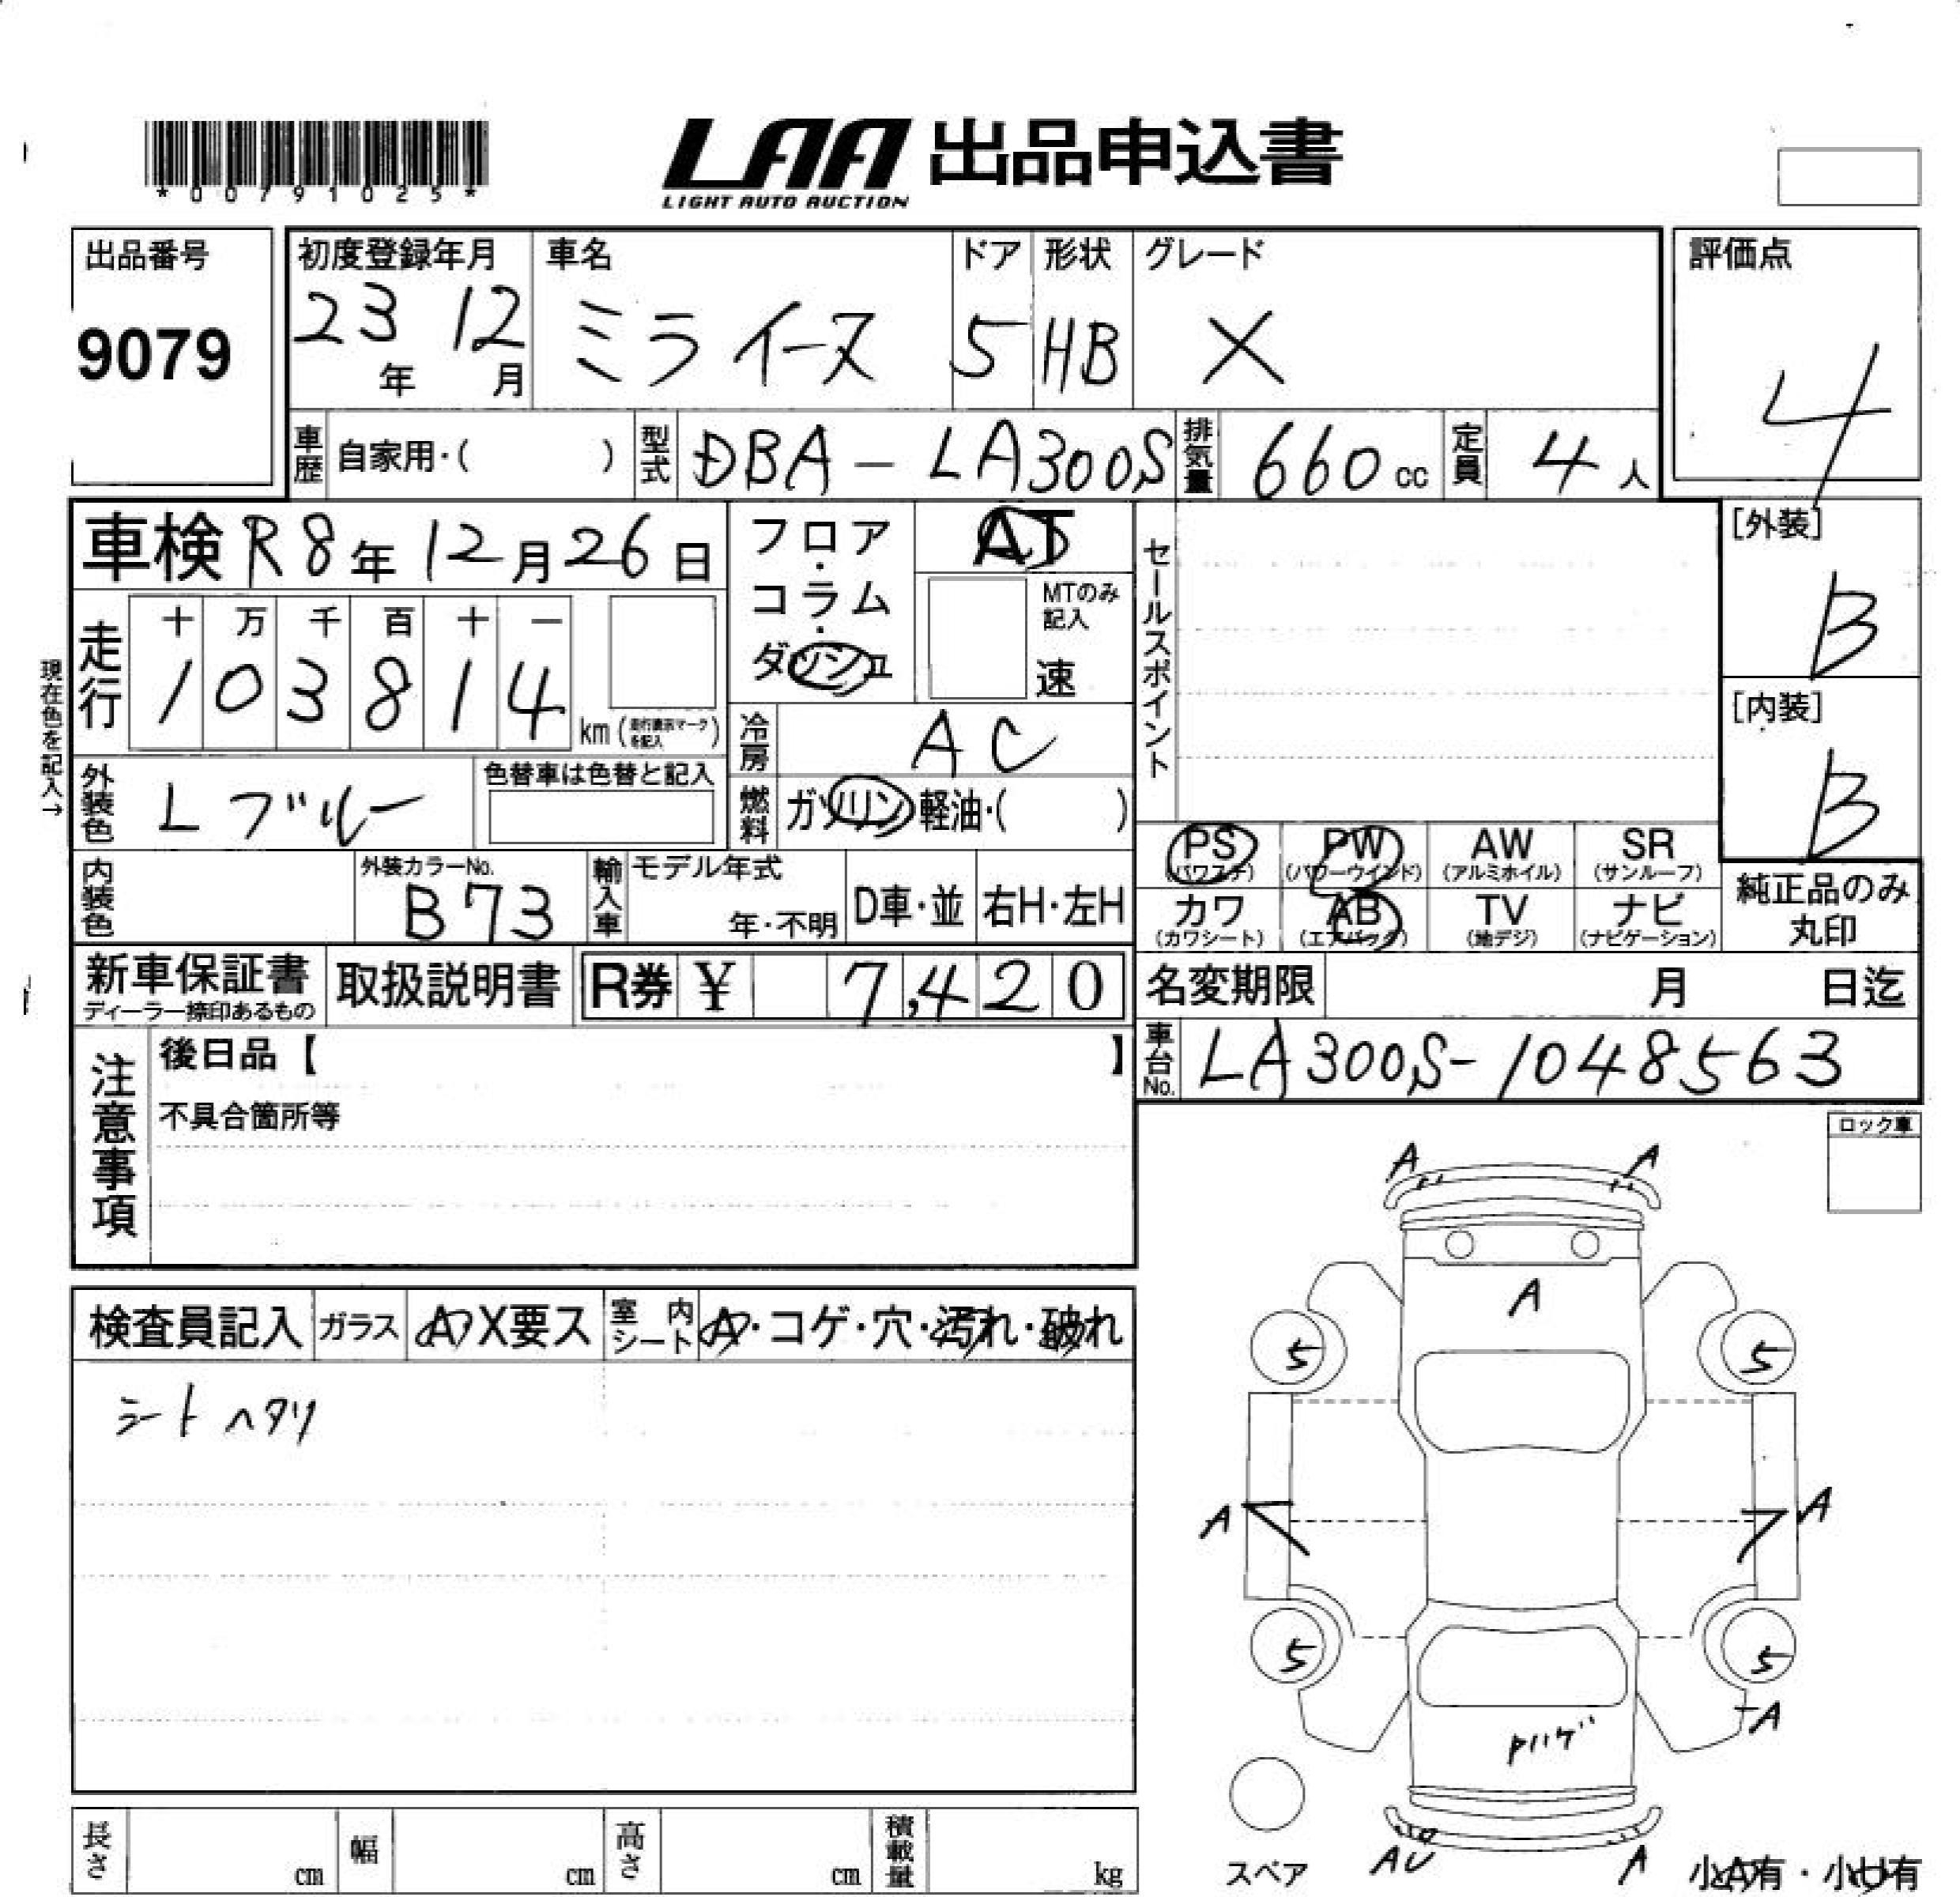 *00791025*
LAA 出品申込書
LIGHT AUTO AUCTION
出品番号
9079
初度登録年月
23年 12月
車名
ミライース
ドア
5
形状
HB
グレード
X
評価点
4
車歴 自家用・( )
型式 DBA-LA300S
排気量 660cc
定員 4人
車検 R8年12月26日
フロア・コラム・ダッシュ
AT
MTのみ記入
速
セールスポイント
[外装]
B
[内装]
B
現在色を記入→
走行
十 万 千 百 十 一
1 0 3 8 1 4 km (走行表示マークを記入)
冷房 AC
外装色 Lブルー
色替車は色替と記入
燃料 ガソリン 軽油・( )
PS (パワステ)
PW (パワーウインド)
AW (アルミホイル)
SR (サンルーフ)
カワ (カワシート)
AB (エアバッグ)
TV (地デジ)
ナビ (ナビゲーション)
純正品のみ丸印
内装色
外装カラーNo.
B73
輸入車
モデル年式
年・不明
D車・並
右H・左H
新車保証書
ディーラー捺印あるもの
取扱説明書
R券 ¥ 7,420
名変期限 月 日迄
車台No. LA300S-1048563
注意事項
後日品【 】
不具合箇所等
ロック車
検査員記入
ガラス
A・X要ス
室内シート
A・コゲ・穴・汚れ・破れ
シートヘタリ
A A
A
5 5
A A
5 5
A
トハゲ
スペア
AU A
小A有・小U有
長さ cm
幅 cm
高さ cm
積載量 kg